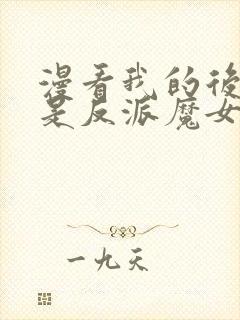 漫看我的後
是反派魔女
一九天